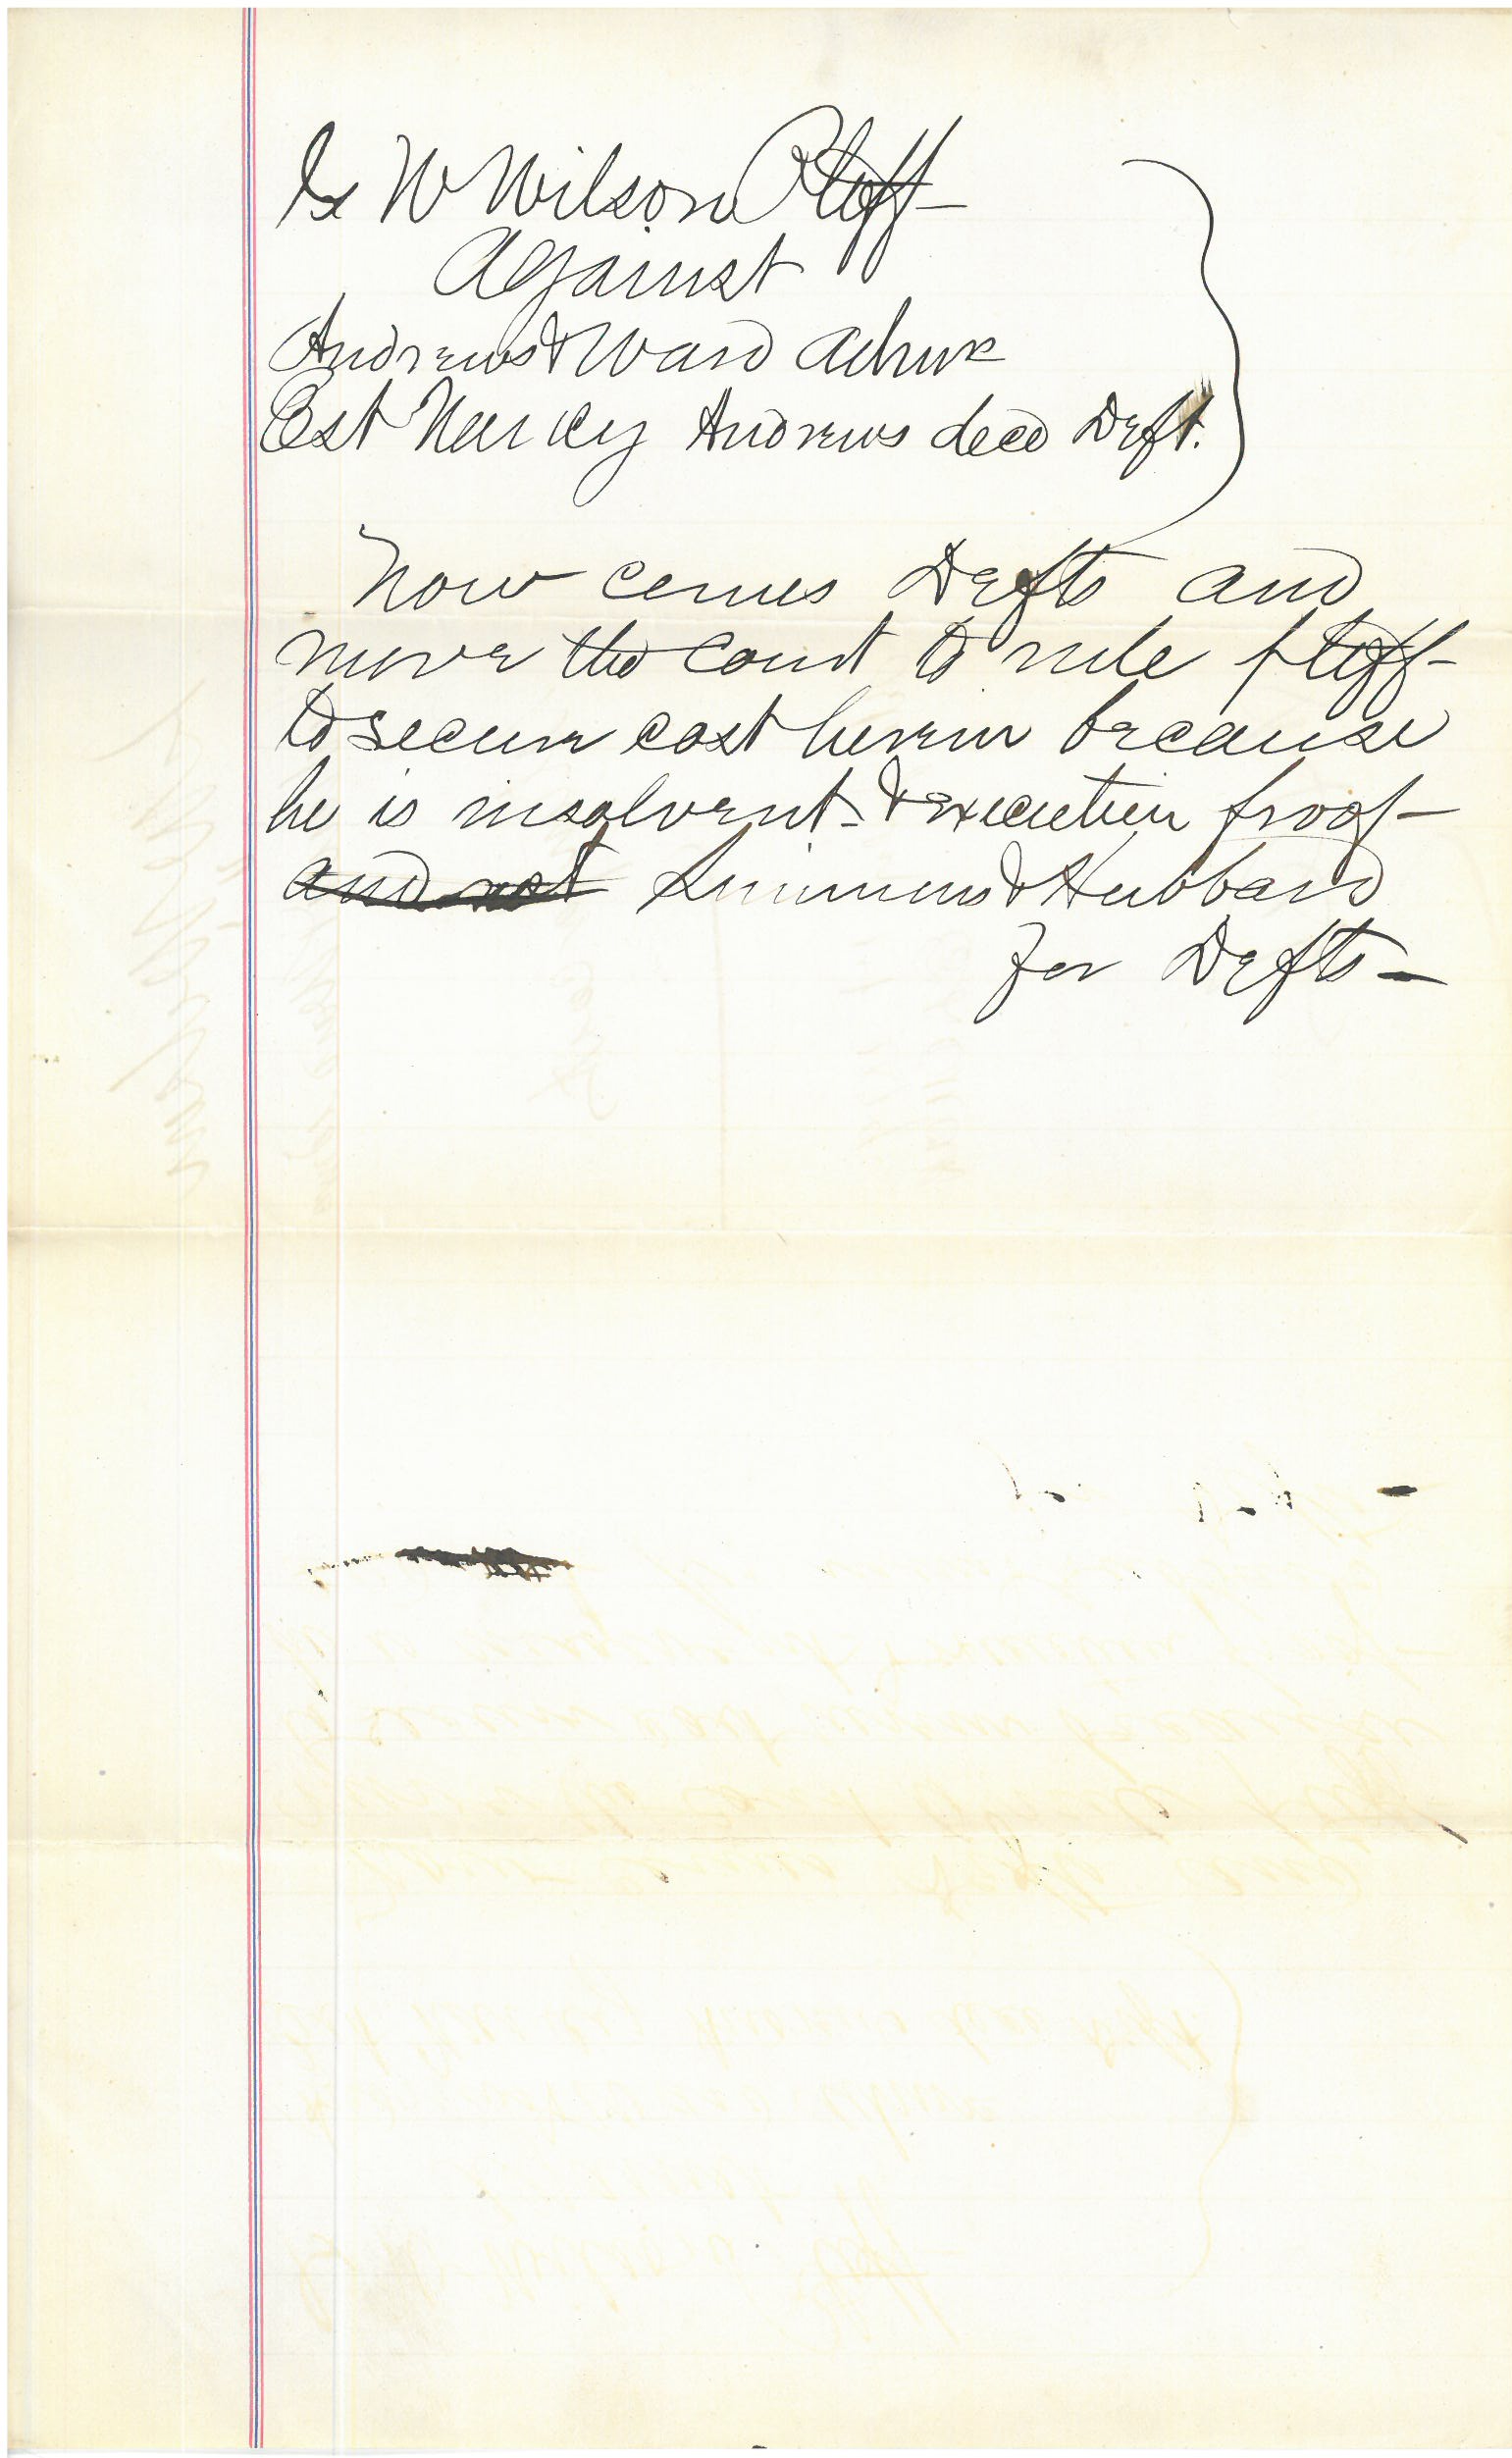 G W Wilson Pltff
Against
Andrews & Ward Admr
Est Nancy Andrews decd Deft.
Now comes Defts and
move the court to rule pltff
to secure cost herein because
he is insolvent & execution proof
and not Simmons & Hubbard
for Defts